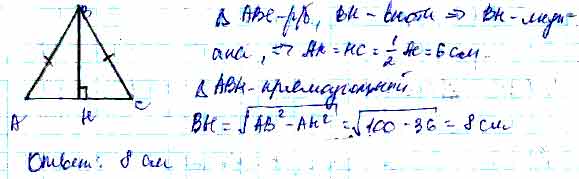 B
A
H
C
Δ ABC-р/б, BH-высота ⇒ BH-меди-
ана, ⇒ AH = HC = 1/2 AC = 6 см.
Δ ABH-прямоугольный
BH = √(AB² - AH²) = √(100 - 36) = 8 см
Ответ: 8 см